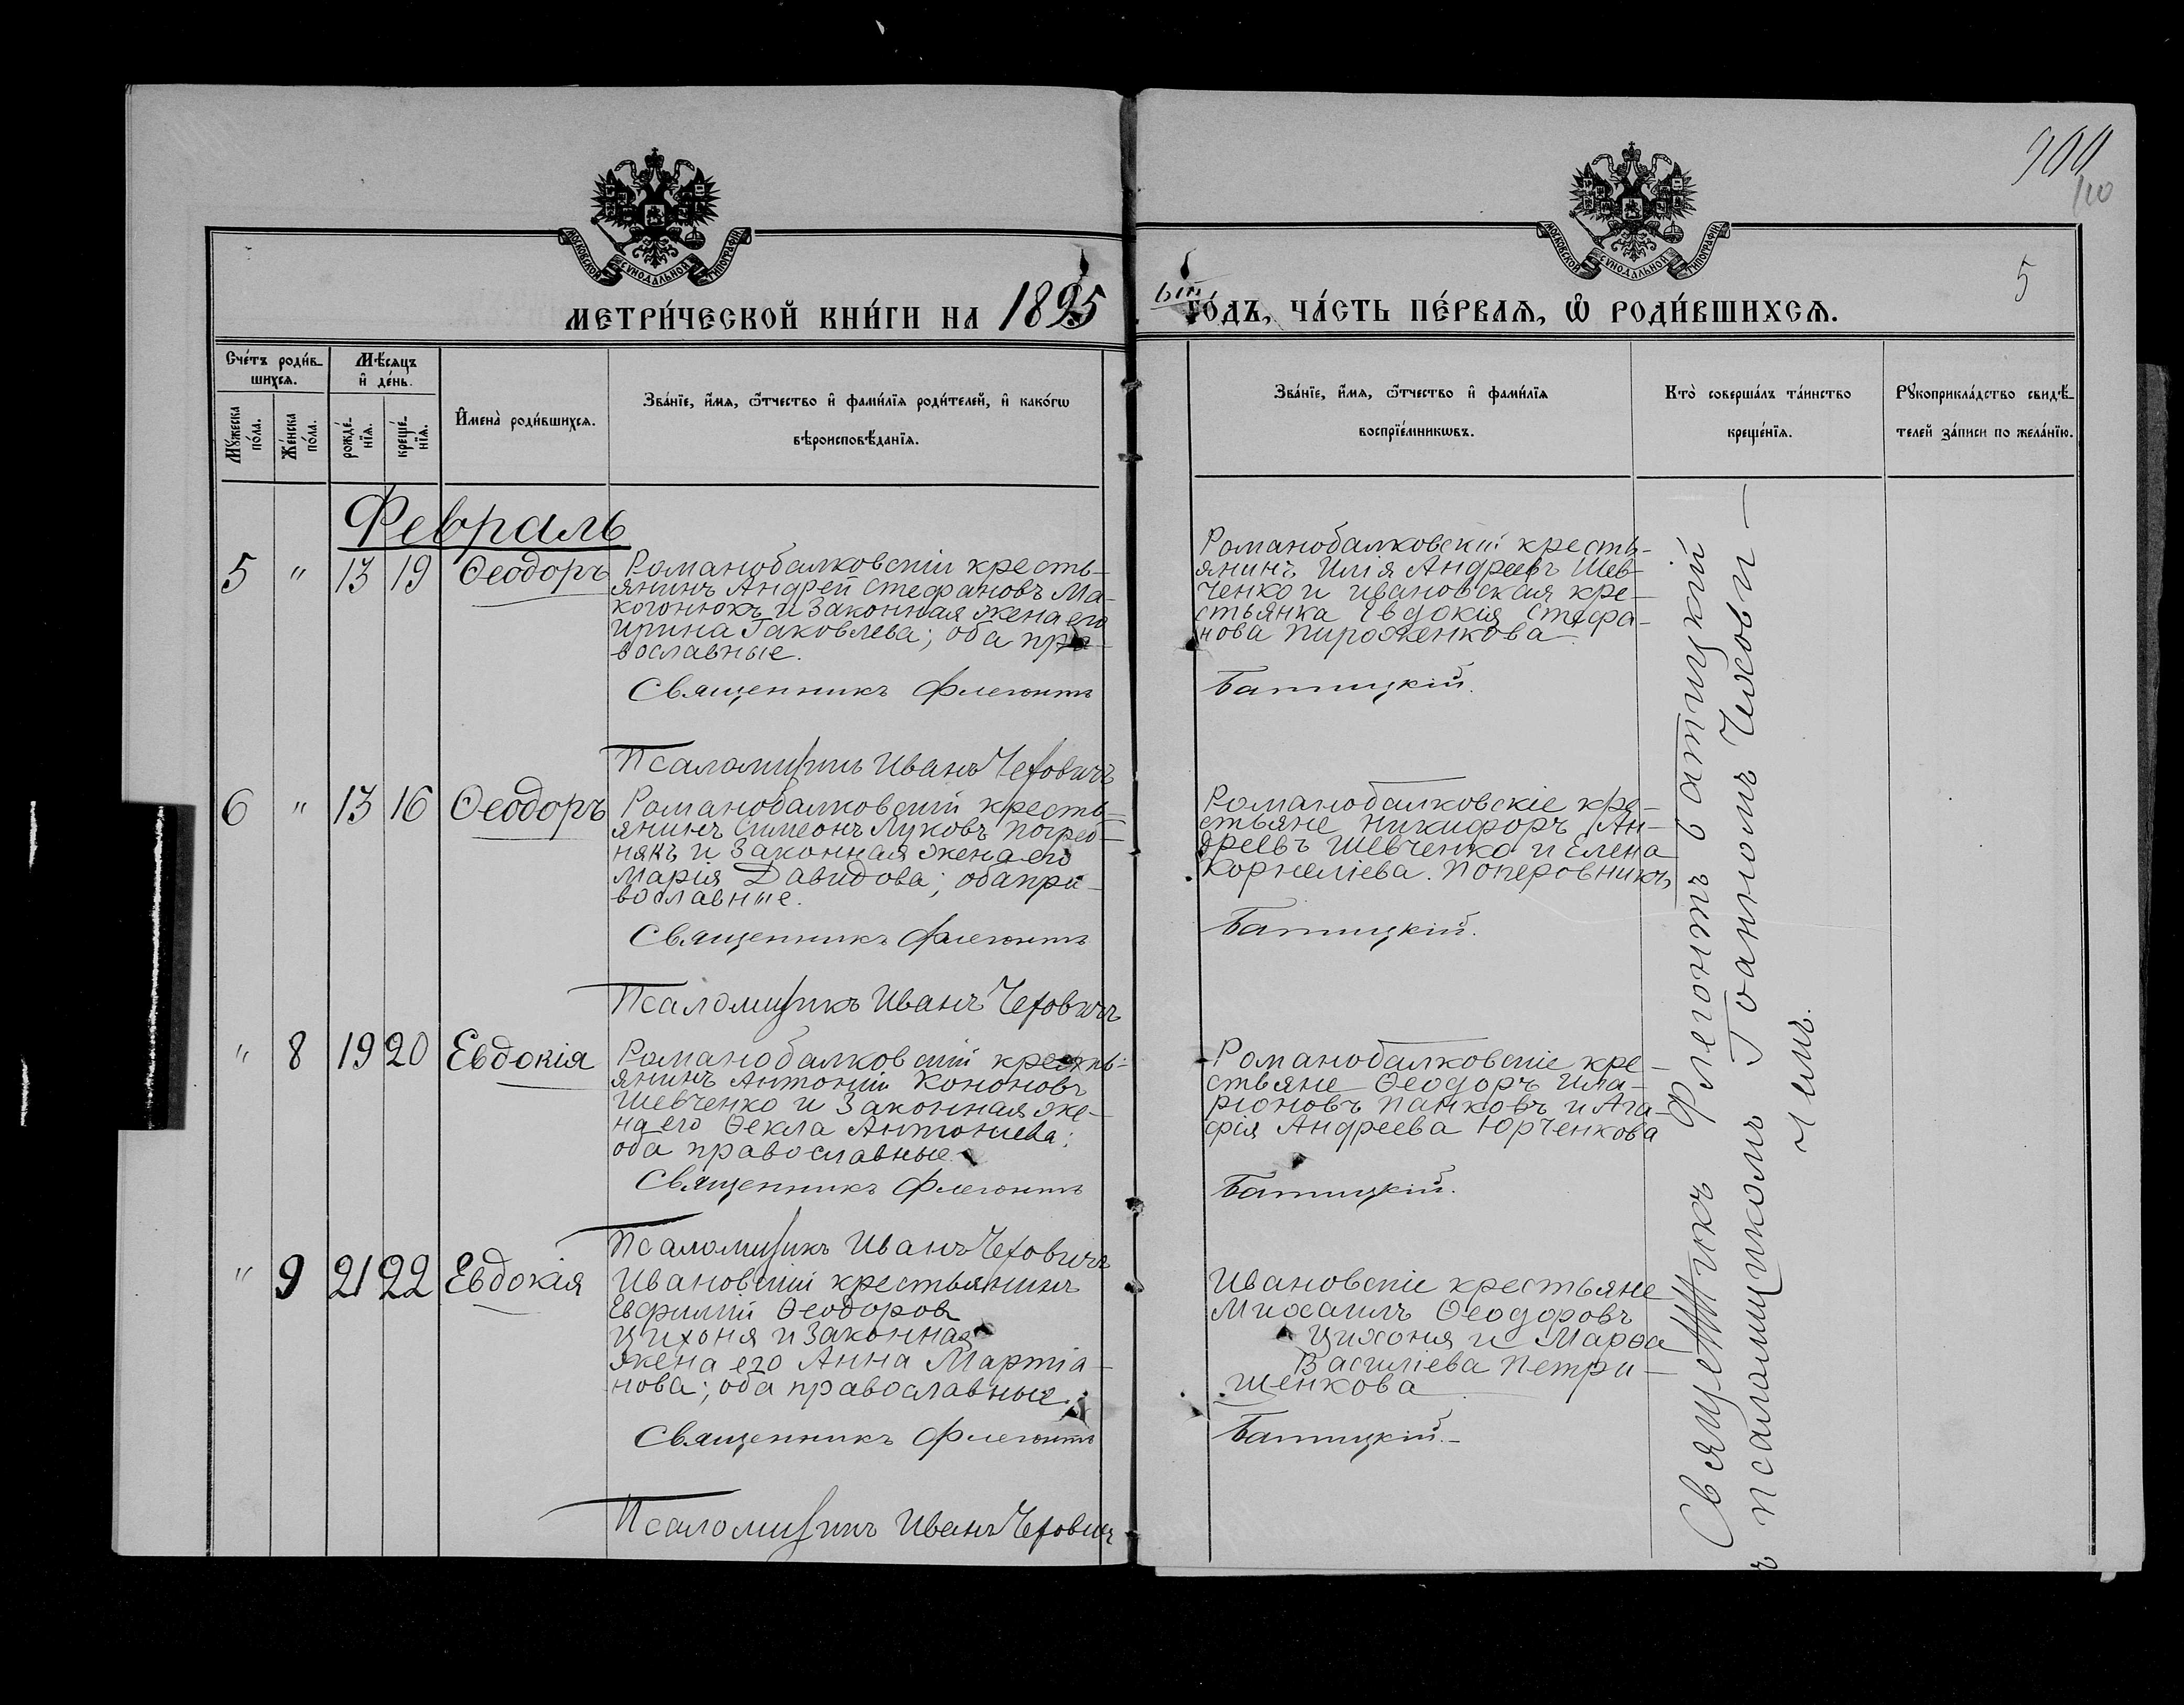 900
110
5
МОСКОВСКОЙ СѴНОДАЛЬНОЙ ТИПОГРАФІИ
МОСКОВСКОЙ СѴНОДАЛЬНОЙ ТИПОГРАФІИ
МЕТРИ́ЧЕСКОЙ КНИ́ГИ НА 1895 ый ГО́ДЪ, ЧА́СТЬ ПЕ́РВАѦ, Ѽ РОДИ́ВШИХСѦ.
Сче́тъ роди́в-
шихсѧ.
Мѣ́сѧцъ
и҆ де́нь.
Мꙋ́жеска
по́ла.
Же́нска
по́ла.
рожде́-
нїѧ.
креще́-
нїѧ.
И҆мена̀ роди́вшихсѧ.
Зва́нїе, и҆́мѧ, ѻ҆́тчество и҆ фами́лїѧ роди́телей, и҆ како́гѡ
вѣроисповѣ́данїѧ.
Зва́нїе, и҆́мѧ, ѻ҆́тчество и҆ фами́лїѧ
воспрїе́мникѡвъ.
Кто̀ соверша́лъ та́инство
креще́нїѧ.
Рꙋкоприкла́дство свидѣ́-
телей за́писи по жела́нїю.
Февраль
5 " 13 19 Ѳеодоръ
Романобалковскій кресть-
янинъ Андрей Стефановъ Ма-
когонюкъ и законная жена его
Ирина Іаковлева; оба пра-
вославные.
Священникъ Флегонтъ
Псаломщикъ Иванъ Чехович
Романобалковскій кресть-
янинъ Илія Андреевъ Шев-
ченко и ивановская кре-
стьянка Евдокія Стефа-
нова Пироженкова
Батицкій.
6 " 13 16 Ѳеодоръ
Романобалковскій кресть-
янинъ Симеонъ Луковъ Погреб-
някъ и законная жена его
Марія Давидова; оба пра-
вославные.
Священникъ Флегонтъ
Псаломщикъ Иванъ Чеховичъ
Романобалковскіе кре-
стьяне Никифоръ Ан-
дреевъ Шевченко и Елена
Корнеліева Поперовникъ
Батицкій.
" 8 19 20 Евдокія
Романобалковскій кресть-
янинъ Антоній Кононовъ
Шевченко и законная же-
на его Ѳекла Антониева;
оба православные.
Священникъ Флегонтъ
Псаломщикъ Иванъ Чеховичъ
Романобалковскіе кре-
стьяне Ѳеодоръ Ила-
ріоновъ Панковъ и Ага-
фія Андреева Юрченкова
Батицкій.
" 9 21 22 Евдокія
Ивановскій крестьянинъ
Евфимій Ѳеодоров
Цихоня и законная
жена его Анна Мартіа-
нова; оба православные.
Священникъ Флегонтъ
Псаломщикъ Иванъ Чехович
Ивановскіе крестьяне
Михаилъ Ѳеодоровъ
Цихоня и Марѳа
Василіева Петри-
щенкова
Батицкій.
Священникъ Флегонтъ Батицкій
съ псаломщикомъ Іоанномъ Чехови-
чемъ.